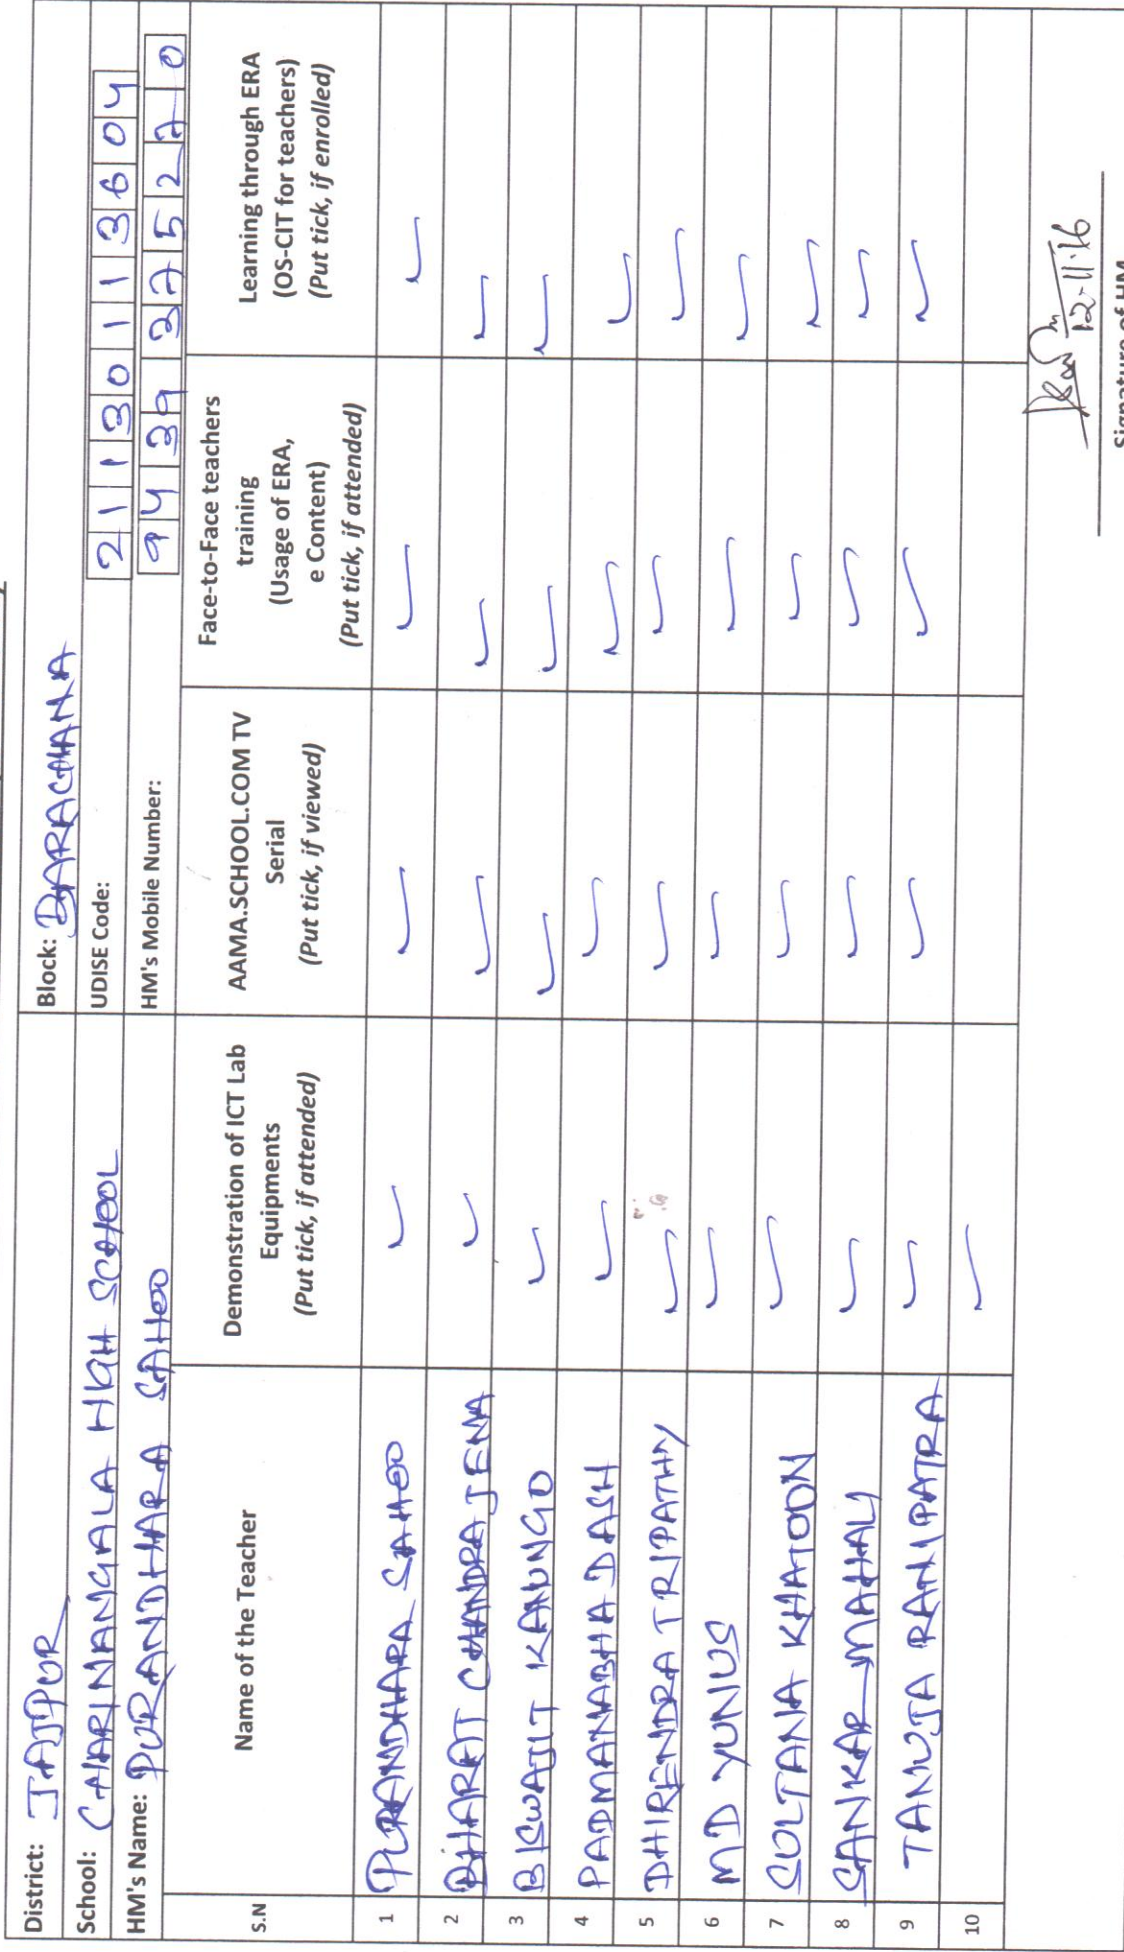 District: JAJPUR Block: BARACHANA
School: CHARINANGALA HIGH SCHOOL UDISE Code: 21130113604
HM's Name: PURANDHARA SAHOO HM's Mobile Number: 9439375270
S.N Name of the Teacher Demonstration of ICT Lab Equipments (Put tick, if attended) AAMA.SCHOOL.COM TV Serial (Put tick, if viewed) Face-to-Face teachers training (Usage of ERA, e Content) (Put tick, if attended) Learning through ERA (OS-CIT for teachers) (Put tick, if enrolled)
1 PURANDHARA SAHOO ✓ ✓ ✓ ✓
2 BHARAT CHANDRA JENA ✓ ✓ ✓ ✓
3 BISWAJIT KANUNGO ✓ ✓ ✓ ✓
4 PADMANABHA DASH ✓ ✓ ✓ ✓
5 DHIRENDRA TRIPATHY ✓ ✓ ✓ ✓
6 MD YUNUS ✓ ✓ ✓ ✓
7 SULTANA KHATOON ✓ ✓ ✓ ✓
8 SANKAR MAHALI ✓ ✓ ✓ ✓
9 TANUJA RANI PATRA ✓ ✓ ✓ ✓
10 ✓
12-11-16
Signature of HM